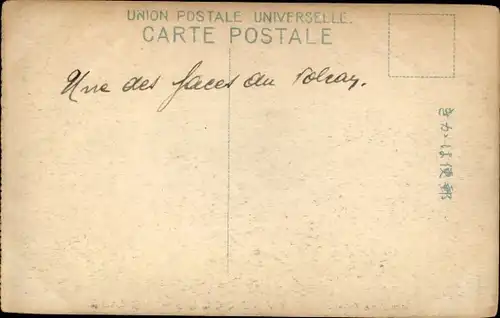 UNION POSTALE UNIVERSELLE.
CARTE POSTALE
Une des faces du Volcan.
きかは便郵